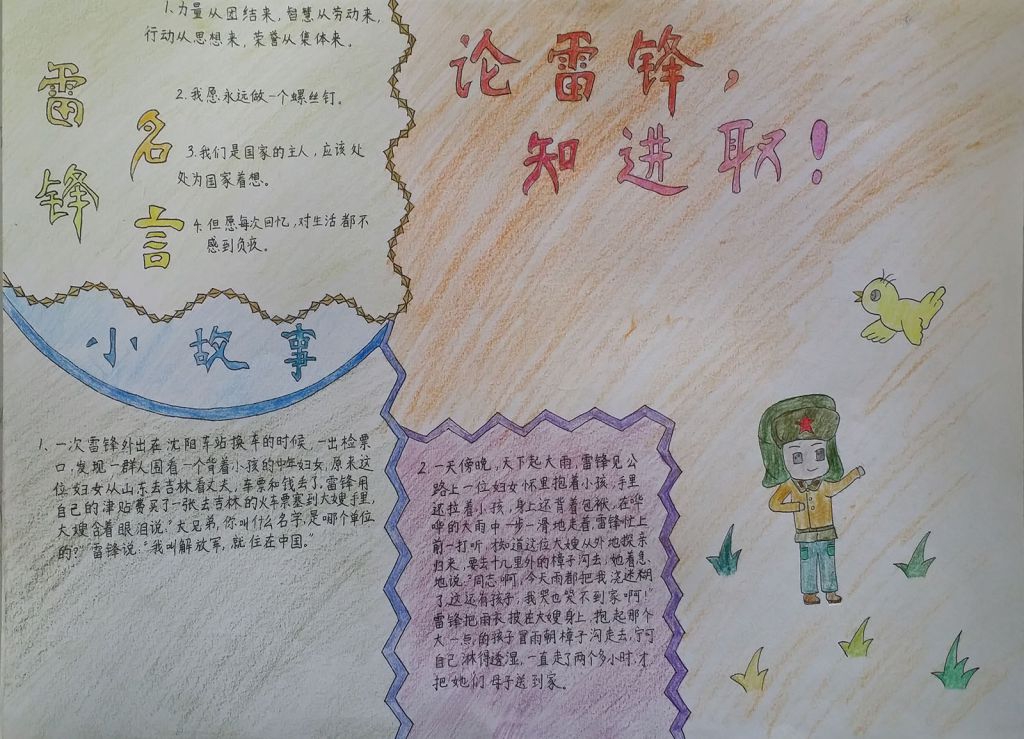 论雷锋,
知进取!
雷锋
名言
1.力量从团结来,智慧从劳动来,
行动从思想来,荣誉从集体来。
2.我愿永远做一个螺丝钉。
3.我们是国家的主人,应该处
处为国家着想。
4.但愿每次回忆,对生活都不
感到负疚。
小故事
1、一次雷锋外出在沈阳车站换车的时候,一出检票
口,发现一群人围看一个背着小孩的中年妇女,原来这
位妇女从山东去吉林看丈夫,车票和钱丢了,雷锋用
自己的津贴费买了一张去吉林的火车票塞到大嫂手里,
大嫂含着眼泪说:"大兄弟,你叫什么名字,是哪个单位
的?"雷锋说:"我叫解放军,就住在中国。"
2.一天傍晚,天下起大雨,雷锋见公
路上一位妇女怀里抱着小孩,手里
还拉着小孩,身上还背着包袱,在哗
哗的大雨中一步一滑地走着,雷锋忙上
前一打听,才知道这位大嫂从外地探亲
归来,要去十几里外的樟子沟去,她着急
地说:"同志啊,今天雨都把我浇迷糊
了,这还有孩子,我哭也哭不到家啊!"
雷锋把雨衣披在大嫂身上,抱起那个
大一点的孩子冒雨朝樟子沟走去,宁可
自己淋得透湿,一直走了两个多小时,才
把她们母子送到家。